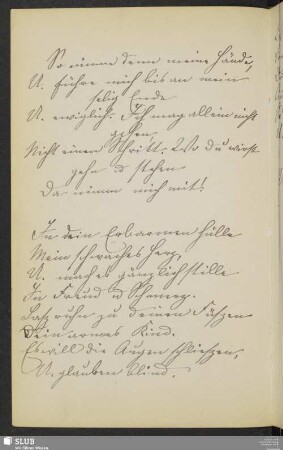 So nimm denn meine Hände,
U. führe mich bis an mein
selig Ende
U. ewiglich. Ich mag allein nicht
gehen,
Nicht einen Schritt. Wo du wirst
gehn u stehen
Da nimm mich mit!
In dein Erbarmen hülle
Mein schwaches Herz,
U. mach es gänzlich stille
In Freud u Schmerz.
Laß ruhn zu deinen Füßen
Dein armes Kind.
Es will die Augen schließen,
U. glauben blind.
SLUB
Wir führen Wissen.